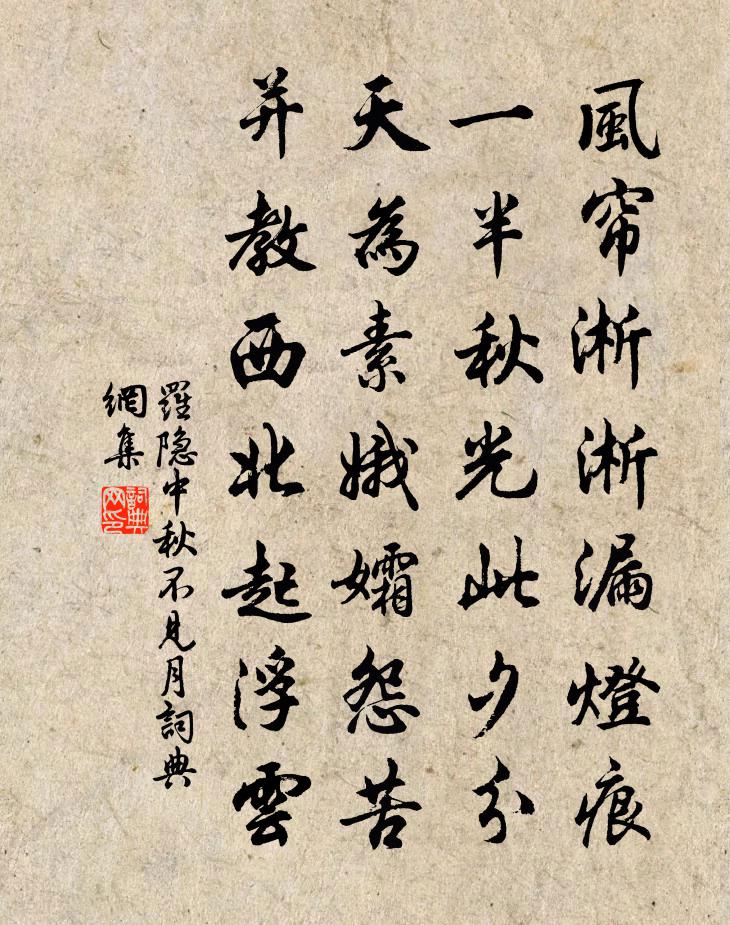 風帘淅淅漏燈痕
一半秋光此夕分
天為素娥孀怨苦
并教西北起浮雲
羅隐中秋不見月詞典
網集
詞典
网印